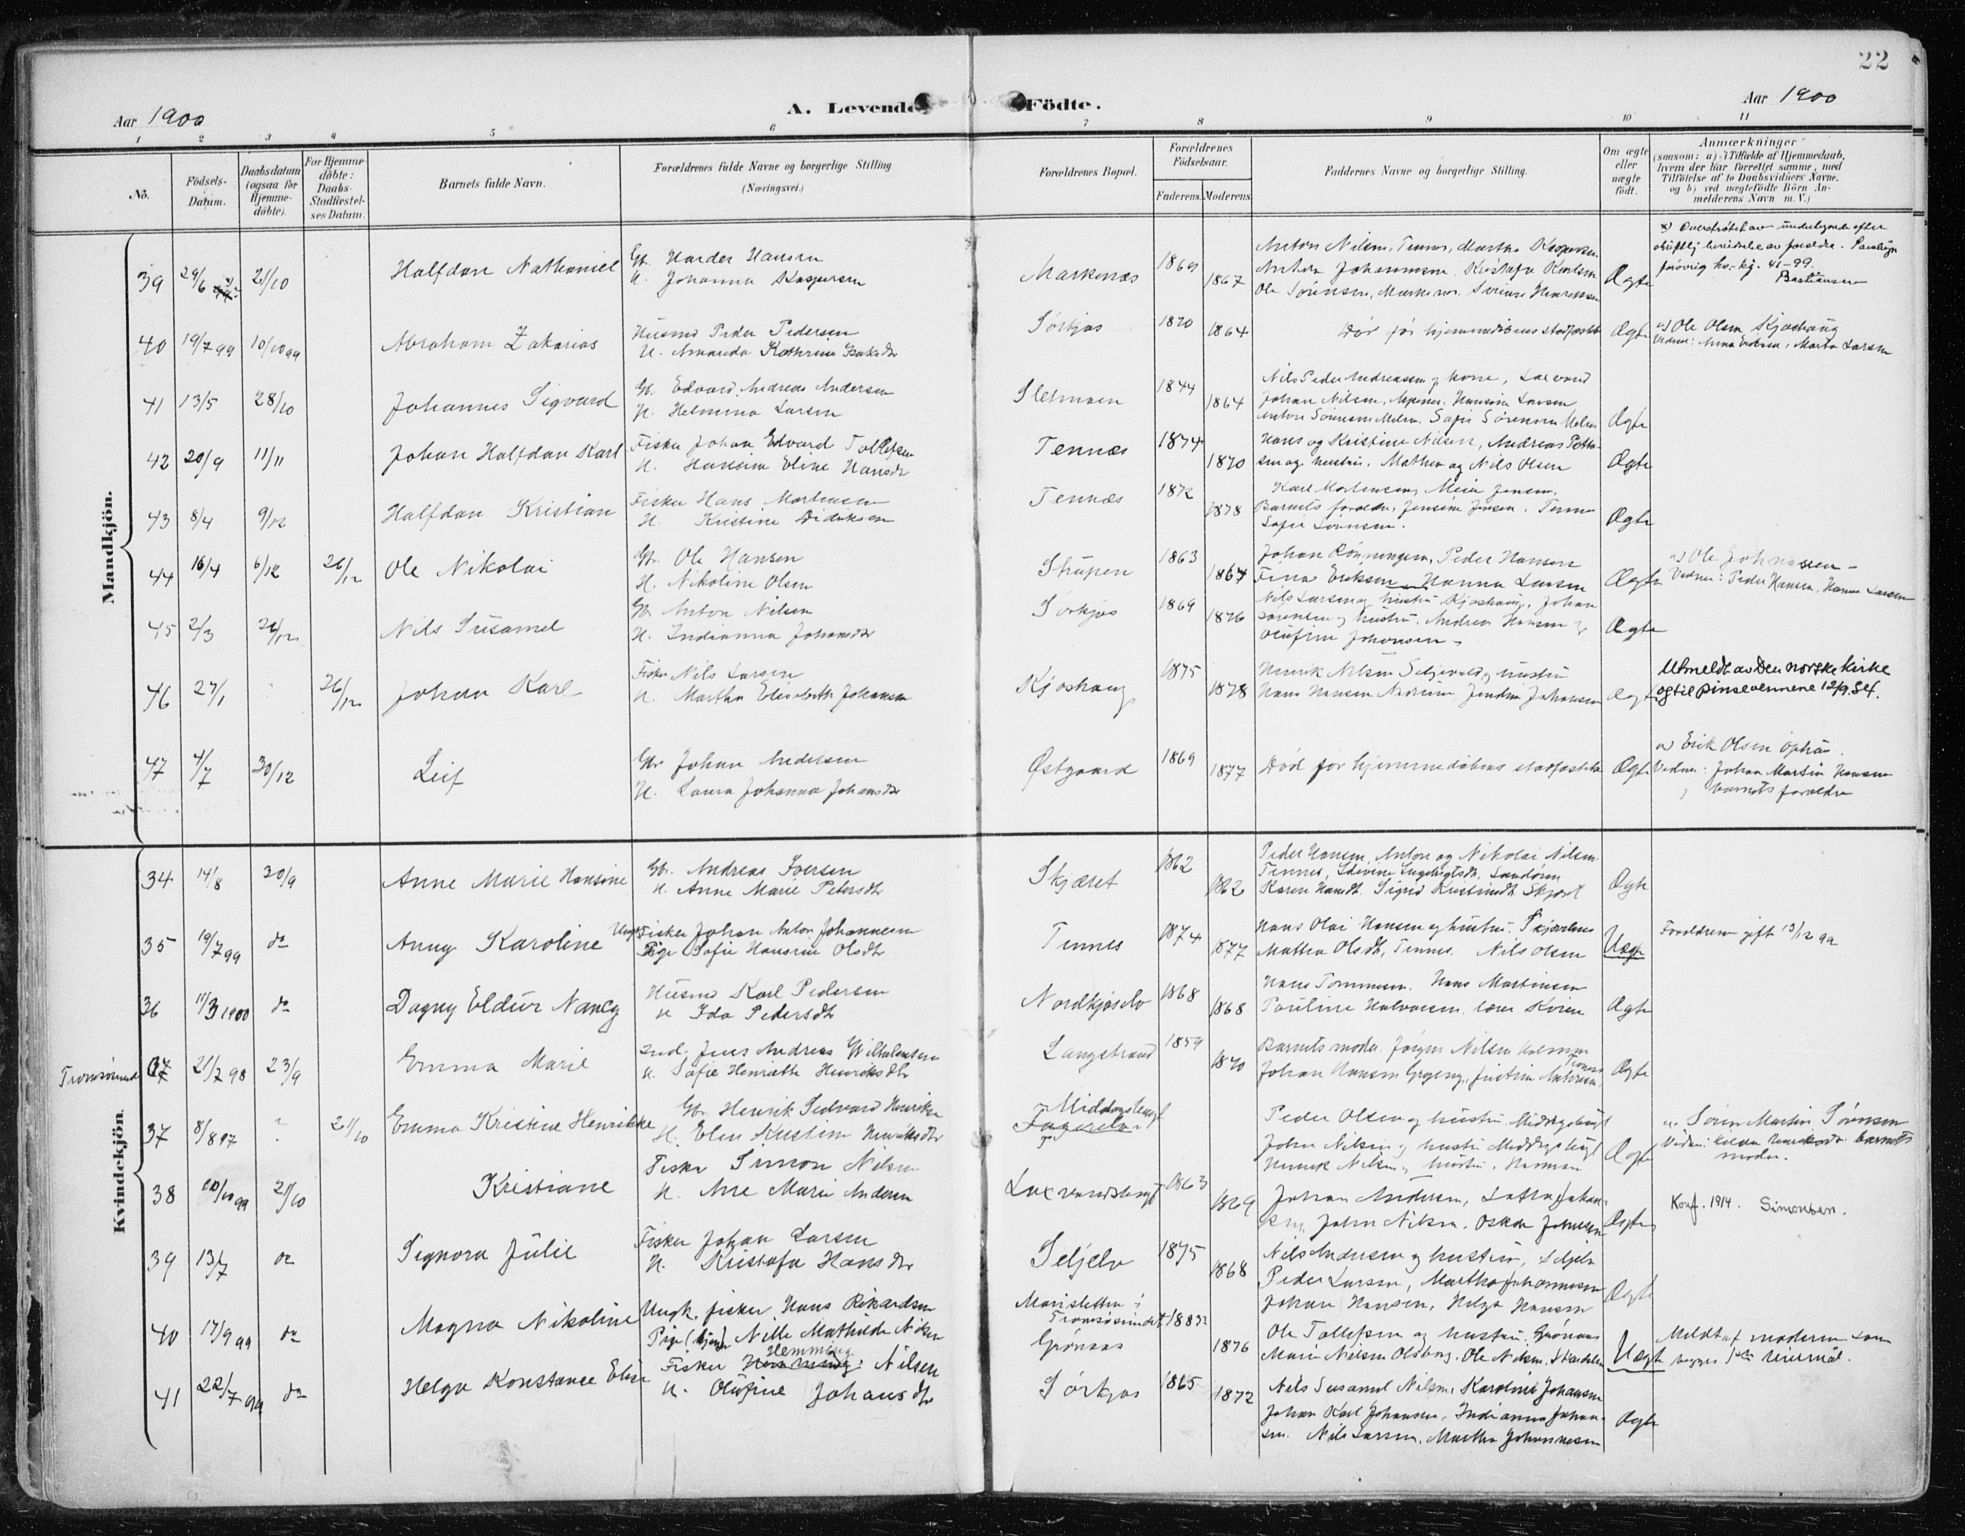 22
Aar 1900
A. Levende Födte.
Aar 1900
1 2 3 4 5 6 7 8 9 10 11
No.
Födsels-
Datum.
Daabsdatum
(ogsaa för
Hjemme-
döbte).
For Hjemme-
döbte:
Daabs-
Stadfæstel-
ses Datum.
Barnets fulde Navn.
Forældrenes fulde Navne og borgerlige Stilling
(Næringsvei.)
Forældrenes Bopæl.
Forældrenes
Födselsaar.
Faderens.
Moderens.
Faddernes Navne og borgerlige Stilling.
Om ægte
eller
uægte
födt.
Anmærkninger
(saasom: a) i Tilfælde af Hjemmedaab,
hvem der har forrettet samme, med
Tilföielse af to Daabsvidners Navne,
og b) ved uægtefödte Börn An-
melderens Navn m. V.)
Mandkjön.
39 29/6 21/10 Halfdan Nathaniel
Gbr. Harder Hansen
H. Johanna Kaspersen
Markenæs 1869 1867
Anton Nilsen, Tennes, Martha Kaspersen
Johannesen, Kristofa Karlsen
Ole Sørensen, Markenes,
Ægte
Bastiansen
40 19/7 99 10/10 99 Abraham Zakarias
Husmd Peder Pedersen
H. Amanda Kathrine Isaksdtr
Sørkjos 1870 1864
Død før hjemmedåbens stadfæstelse
Ægte
a) Ole Olsen Kjoshaug
Vidner: Anna Eriksen, Marta Larsen
41 13/5 28/10 Johannes Sigvard
Gb. Edvard Andreas Andersen
H. Helmina Larsen
Sletmoen 1844 1864
Nils Peder Andreassen og kone,
Johan Nilsen, Hansine Larsen
Anton Sørensen Melen, Sofie Sørensen Melen
Ægte
42 20/9 11/11 Johan Halfdan Karl
Fisker Johan Edvard Tollefsen
H. Hansine Eline Hansdtr
Tennæs 1874 1870
Hans og Kristine Nilsen, Andreas Petter-
sen og hustru, Mathea og Nils Olsen
Ægte
43 8/4 9/12 Halfdan Kristian
Fisker Hans Martinsen
H. Kristine Didriksen
Tennæs 1872 1878
Karl Mortensen, Meier Jensen,
Barnets forældre, Jensine Jensen, Tennes
Sofie Sørensen.
Ægte
44 16/4 6/12 26/12 Ole Nikolai
Gbr. Ole Hansen
H. Nikoline Olsen
Stupen 1863 1867
Johan Rønningen, Peder Hansen
Fina Eriksen, Hanna Larsen
Ægte
a) Ole Johnassen
Vidner: Peder Hansen, Hanna Larsen
45 2/3 26/12 Nils Susamel
Gbr Anton Nilsen
H. Indianna Johansdtr
Sørkjos 1869 1876
Nils Larsen og hustru Kjoshaug, Johan
Sørensen og hustru, Andrea Hansen og
Olufine Johansen
Ægte
46 27/1 26/12 Johan Karl
Fisker Nils Larsen
H. Martha Elisabeth Johansen
Kjoshaug 1875 1878
Henrik Nilsen Seljevold og hustru
Hans Hansen Johansen
Ægte
Utmeldt av Den norske kirke
og til pinsevennene 12/9.54.
47 4/7 30/12 Leif
Gbr Johan Andersen
H. Laura Johanna Johansdtr
Østgaard 1869 1877
Død før hjemmedåbens stadfæstelse
Ægte
a) Erik Olsen
Vidner: Johan Martin Hansen
barnets forældre
Kvindekjön.
34 14/8 30/9 Anne Marie Hansine
Gb. Andreas Iversen
H. Anne Marie Petersdtr
Skjæret 1862 1862
Peder Hansen, Anton og Nikolai Nilsen
Tennes, Sandøren
Karen Hansdt. Sigrid Kristinedt Skjæret
Ægte
35 19/7 99 do Anny Karoline
Ungk. Fisker Johan Anton Johannesen
Pige Sofie Hansine Olsdtr
Tennes 1874 1877
Hans Olai Hansen og hustru,
Mathea Olsdt, Tennes. Nils Olsen
Uægte
Forældrene gift 13/12 99
36 11/3 1900 do Dagny Eldur Nancy
Husmd Karl Pedersen
H Ida Pedersdtr
Nordkjoselv 1868 1868
Hans Tommesen. Hans Martinsen
Pauline Halvorsen.
Ægte
Tromsøsundet 37 21/7 98 23/9 Emma Marie
Ind. Jens Andreas Wilhelmsen
H. Sofie Henriette Henriksdtr
Langstrand 1859 1870
Barnets moder. Jørgen Nilsen
Johan Hansen
Ægte
37 8/8 97 ? 21/10 Emma Kristine Henrikke
Gbr. Henrik Sedvard Henriksen
H. Elen Kristine Henriksdtr
Middagsbugt
Fagerelv
Peder Olsen og hustru Middagsbugt
John Nilsen og hustru Middagsbugt
Henrik Nilsen og hustru,
Ægte
a. Søren Martin Sørensen
barnets
moder.
38 10/10 99 21/10 Kristiane
Fisker Simon Nilsen
H. Ane Marie Andersen
Laxvandsbugt 1863 1869
Johan Andersen, Johan-
sen, John Nilsen, Oskar Johnsen
Ægte
Konf. 1914. Simonsen.
39 13/7 do Signora Julie
Fisker Johan Larsen
H. Kristofa Hansdtr
Seljelv 1875 1868
Nils Andersen og hustru, Seljelv
Peder Larsen, Martha Johannesen
Johan Hansen, Helga Hansen
Ægte
40 17/9 99 do Magna Nikoline
Ungk. fisker Hans Rikardsen
Pige Nille Mathilde Nilsen
Marisletten i
Tromsøsundet
Grønaas
1883 1876
Ole Tollefsen og hustru Grønaas
Marie Nielsen Olsborg, Ole Nilsen,
Uægte
Meldt af moderen som
begges 1ste leiermål.
41 22/7 99 do Helga Konstance Elise
Fisker Hemming Nilsen
H. Olufine Johansdtr
Sørkjos 1865 1872
Nils Susamel Nilsen, Karoline Johansen
Johan Karl Johansen, Indianna Johan-
sen. Nils Larsen, Martha Johannesen
Ægte